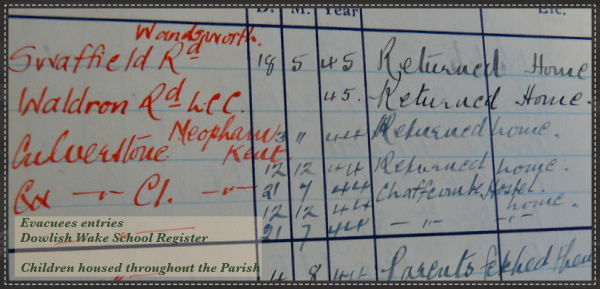 D. M. Year Etc.
Wandsworth.
Swaffield Rd 18 5 45 Returned Home
Waldron Rd LCC. 45. Returned Home.
Culverstone Meopham Kent 3 " 44 Returned home.
12 12 44 Returned home.
21 7 44 Chaffcombe Hostel.
12 12 44 home.
21 7 44 —"— —"—
4 8 44 Parents fetched them
Evacuees entries
Dowlish Wake School Register
Children housed throughout the Parish